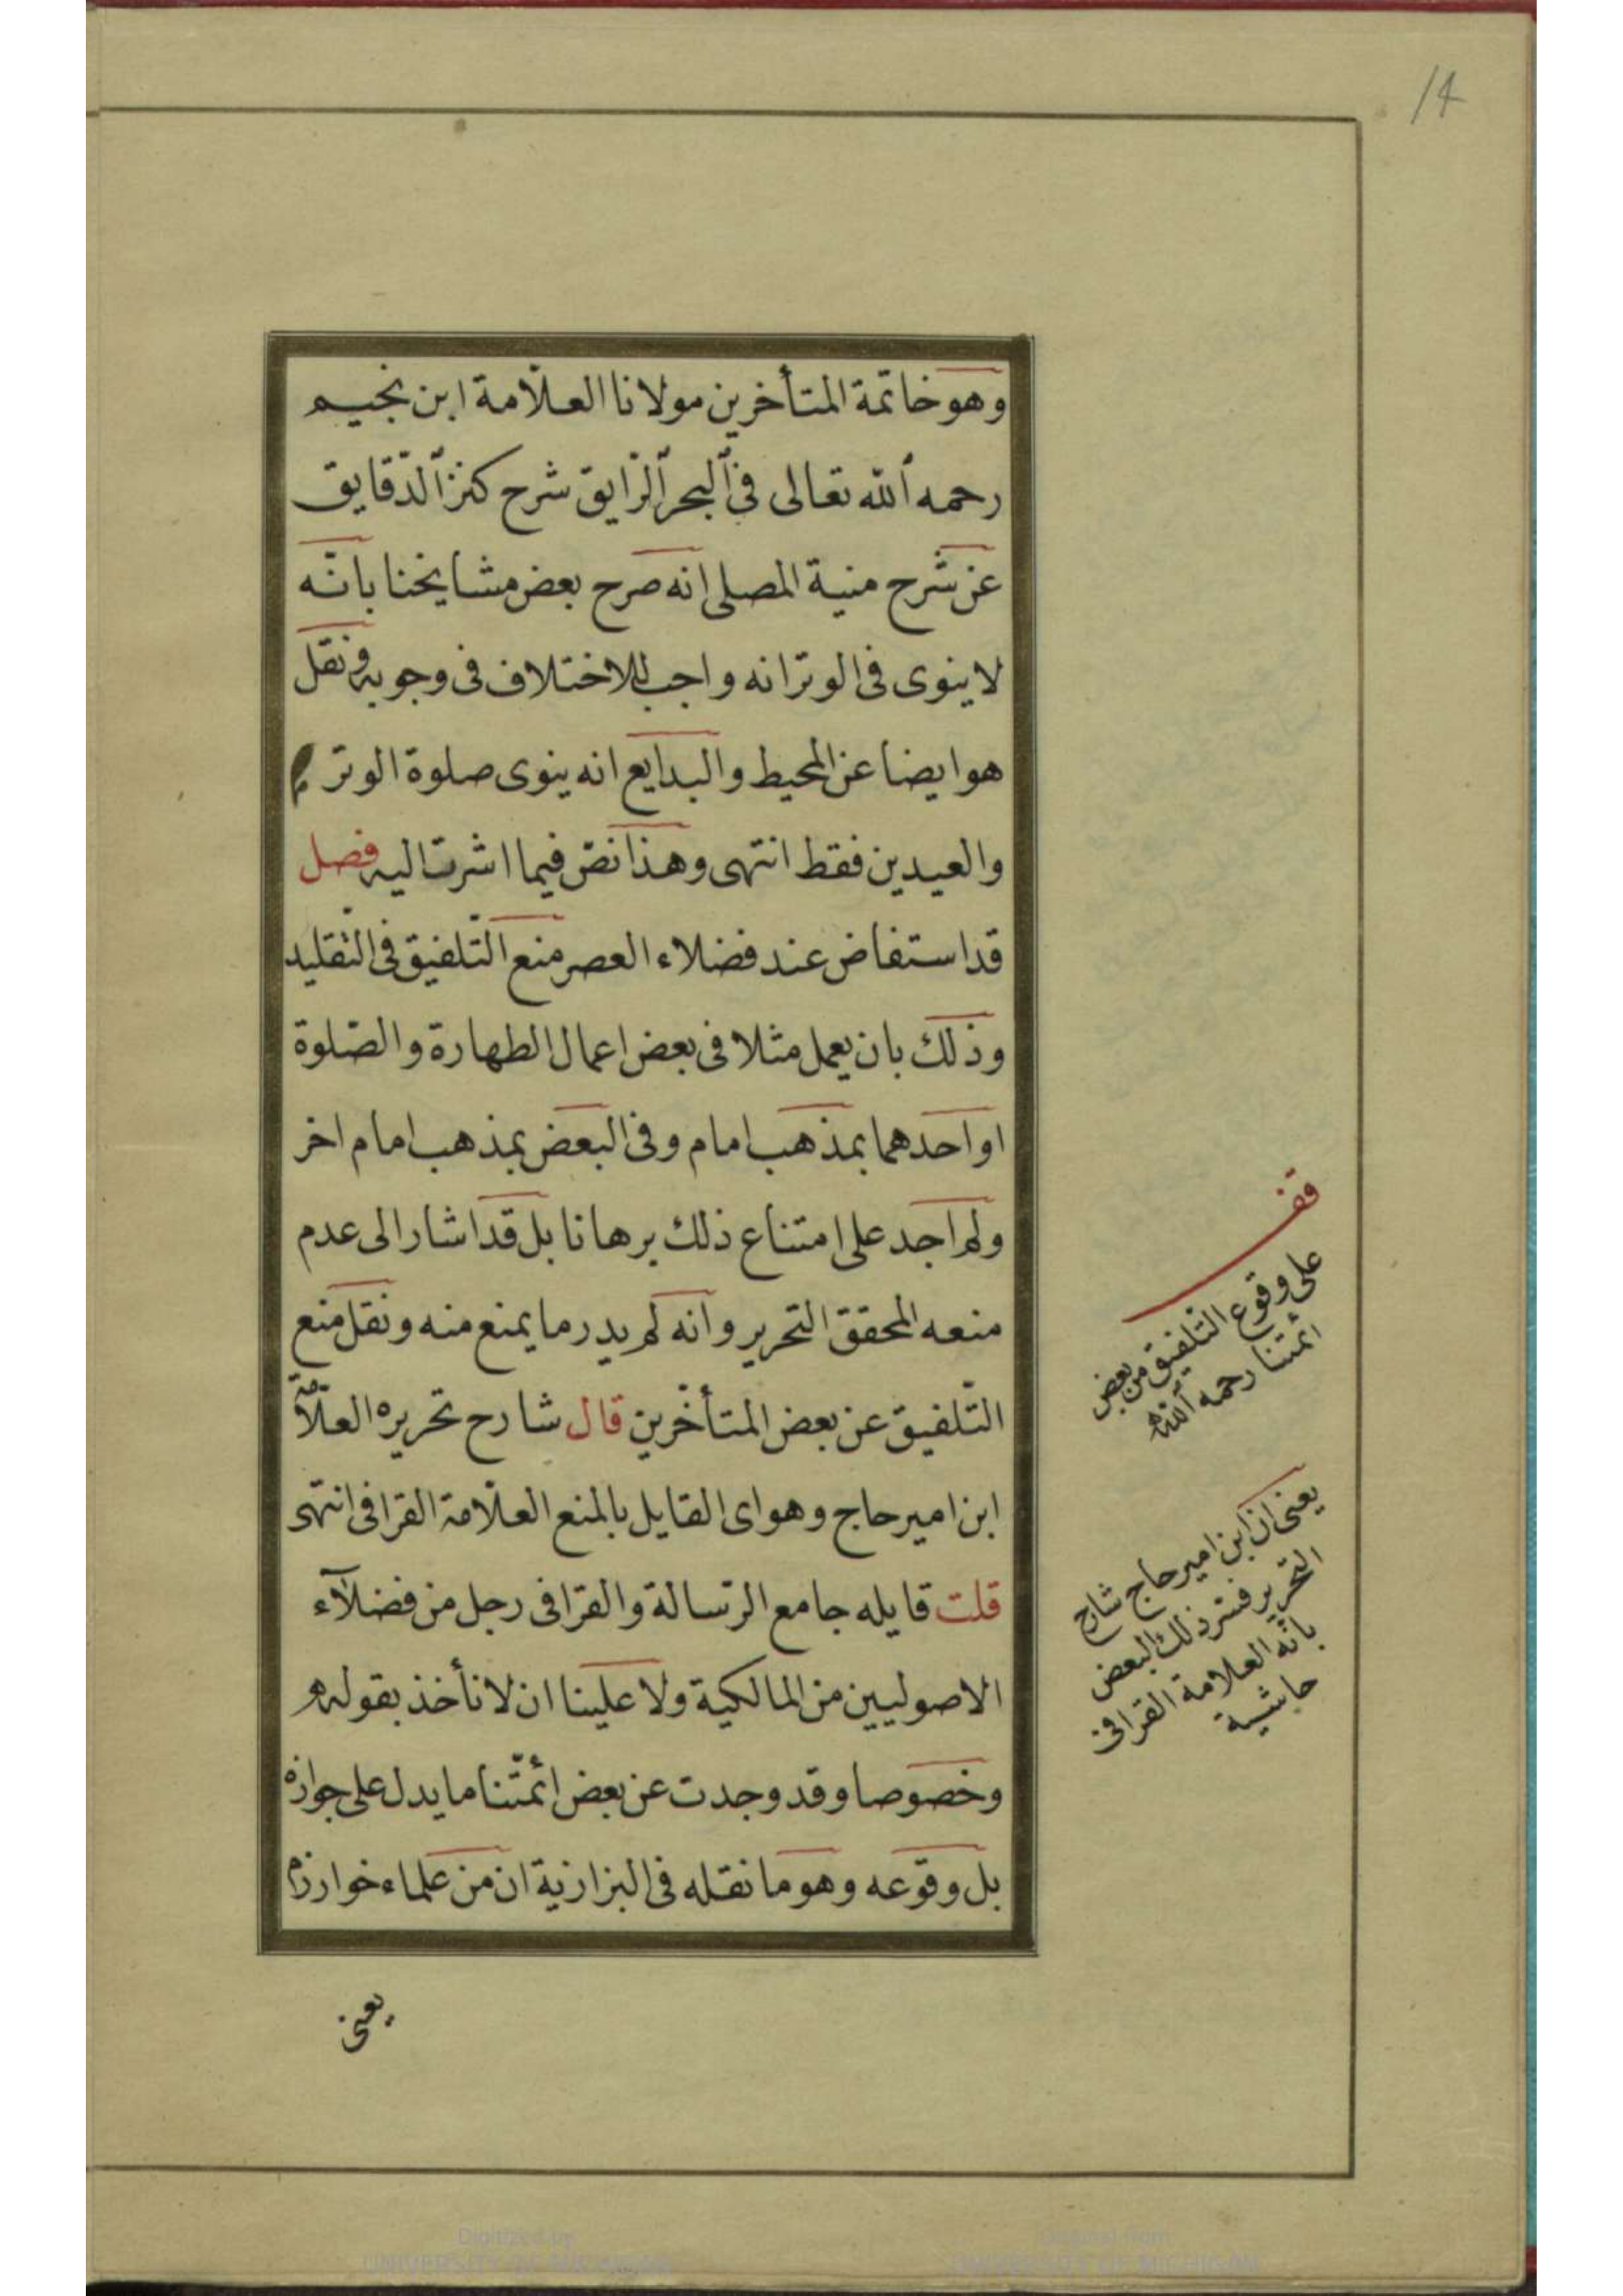 14
وهو خاتمة المتأخرين مولانا العلّامة ابن نجيم
رحمه الله تعالى فى البحر الرّايق شرح كنز الدّقايق
عن شرح منية المصلى انه صرح بعض مشايخنا بانّه
لا ينوى فى الوتر انه واجب للاختلاف فى وجوبه ونقل
هو ايضا عن المحيط والبدايع انه ينوى صلوة الوتر
والعيدين فقط انتهى وهذا نصّ فيما اشرت اليه فصل
قد استفاض عند فضلاء العصر منع التّلفيق فى التّقليد
وذلك بان يعمل مثلا فى بعض اعمال الطهارة والصّلوة
او احدهما بمذهب امام وفى البعض بمذهب امام اخر
ولم اجد على امتناع ذلك برهانا بل قد اشار الى عدم
منعه المحقق التحرير وانه لم يدر ما يمنع منه ونقل منع
التّلفيق عن بعض المتأخّرين قال شارح تحريره العلّامة
ابن امير حاج وهو اى القايل بالمنع العلّامة القرافى انتهى
قلت قايله جامع الرّسالة والقرافى رجل من فضلآء
الاصوليين من المالكية ولا علينا ان لا نأخذ بقوله
وخصوصا وقد وجدت عن بعض ائمّتنا ما يدل على جوازه
بل وقوعه وهو ما نقله فى البزازية ان من علماء خوارزم
يعنى
قف
على وقوع التّلفيق من بعض
ائمّتنا رحمه الله
يعنى ان ابن امير حاج شارح
التحرير فسّر ذلك البعض
بانّه العلامة القرافى
حاشية
Digitized by
UNIVERSITY OF MICHIGAN
Original from
UNIVERSITY OF MICHIGAN